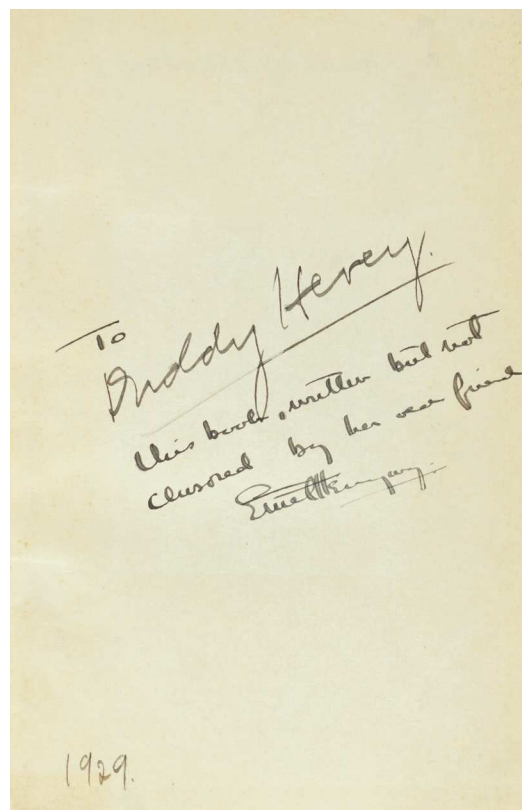 To
Duddy Hervey.
this book, written but not
censored by her old friend
Ernest Hemingway.
1929.